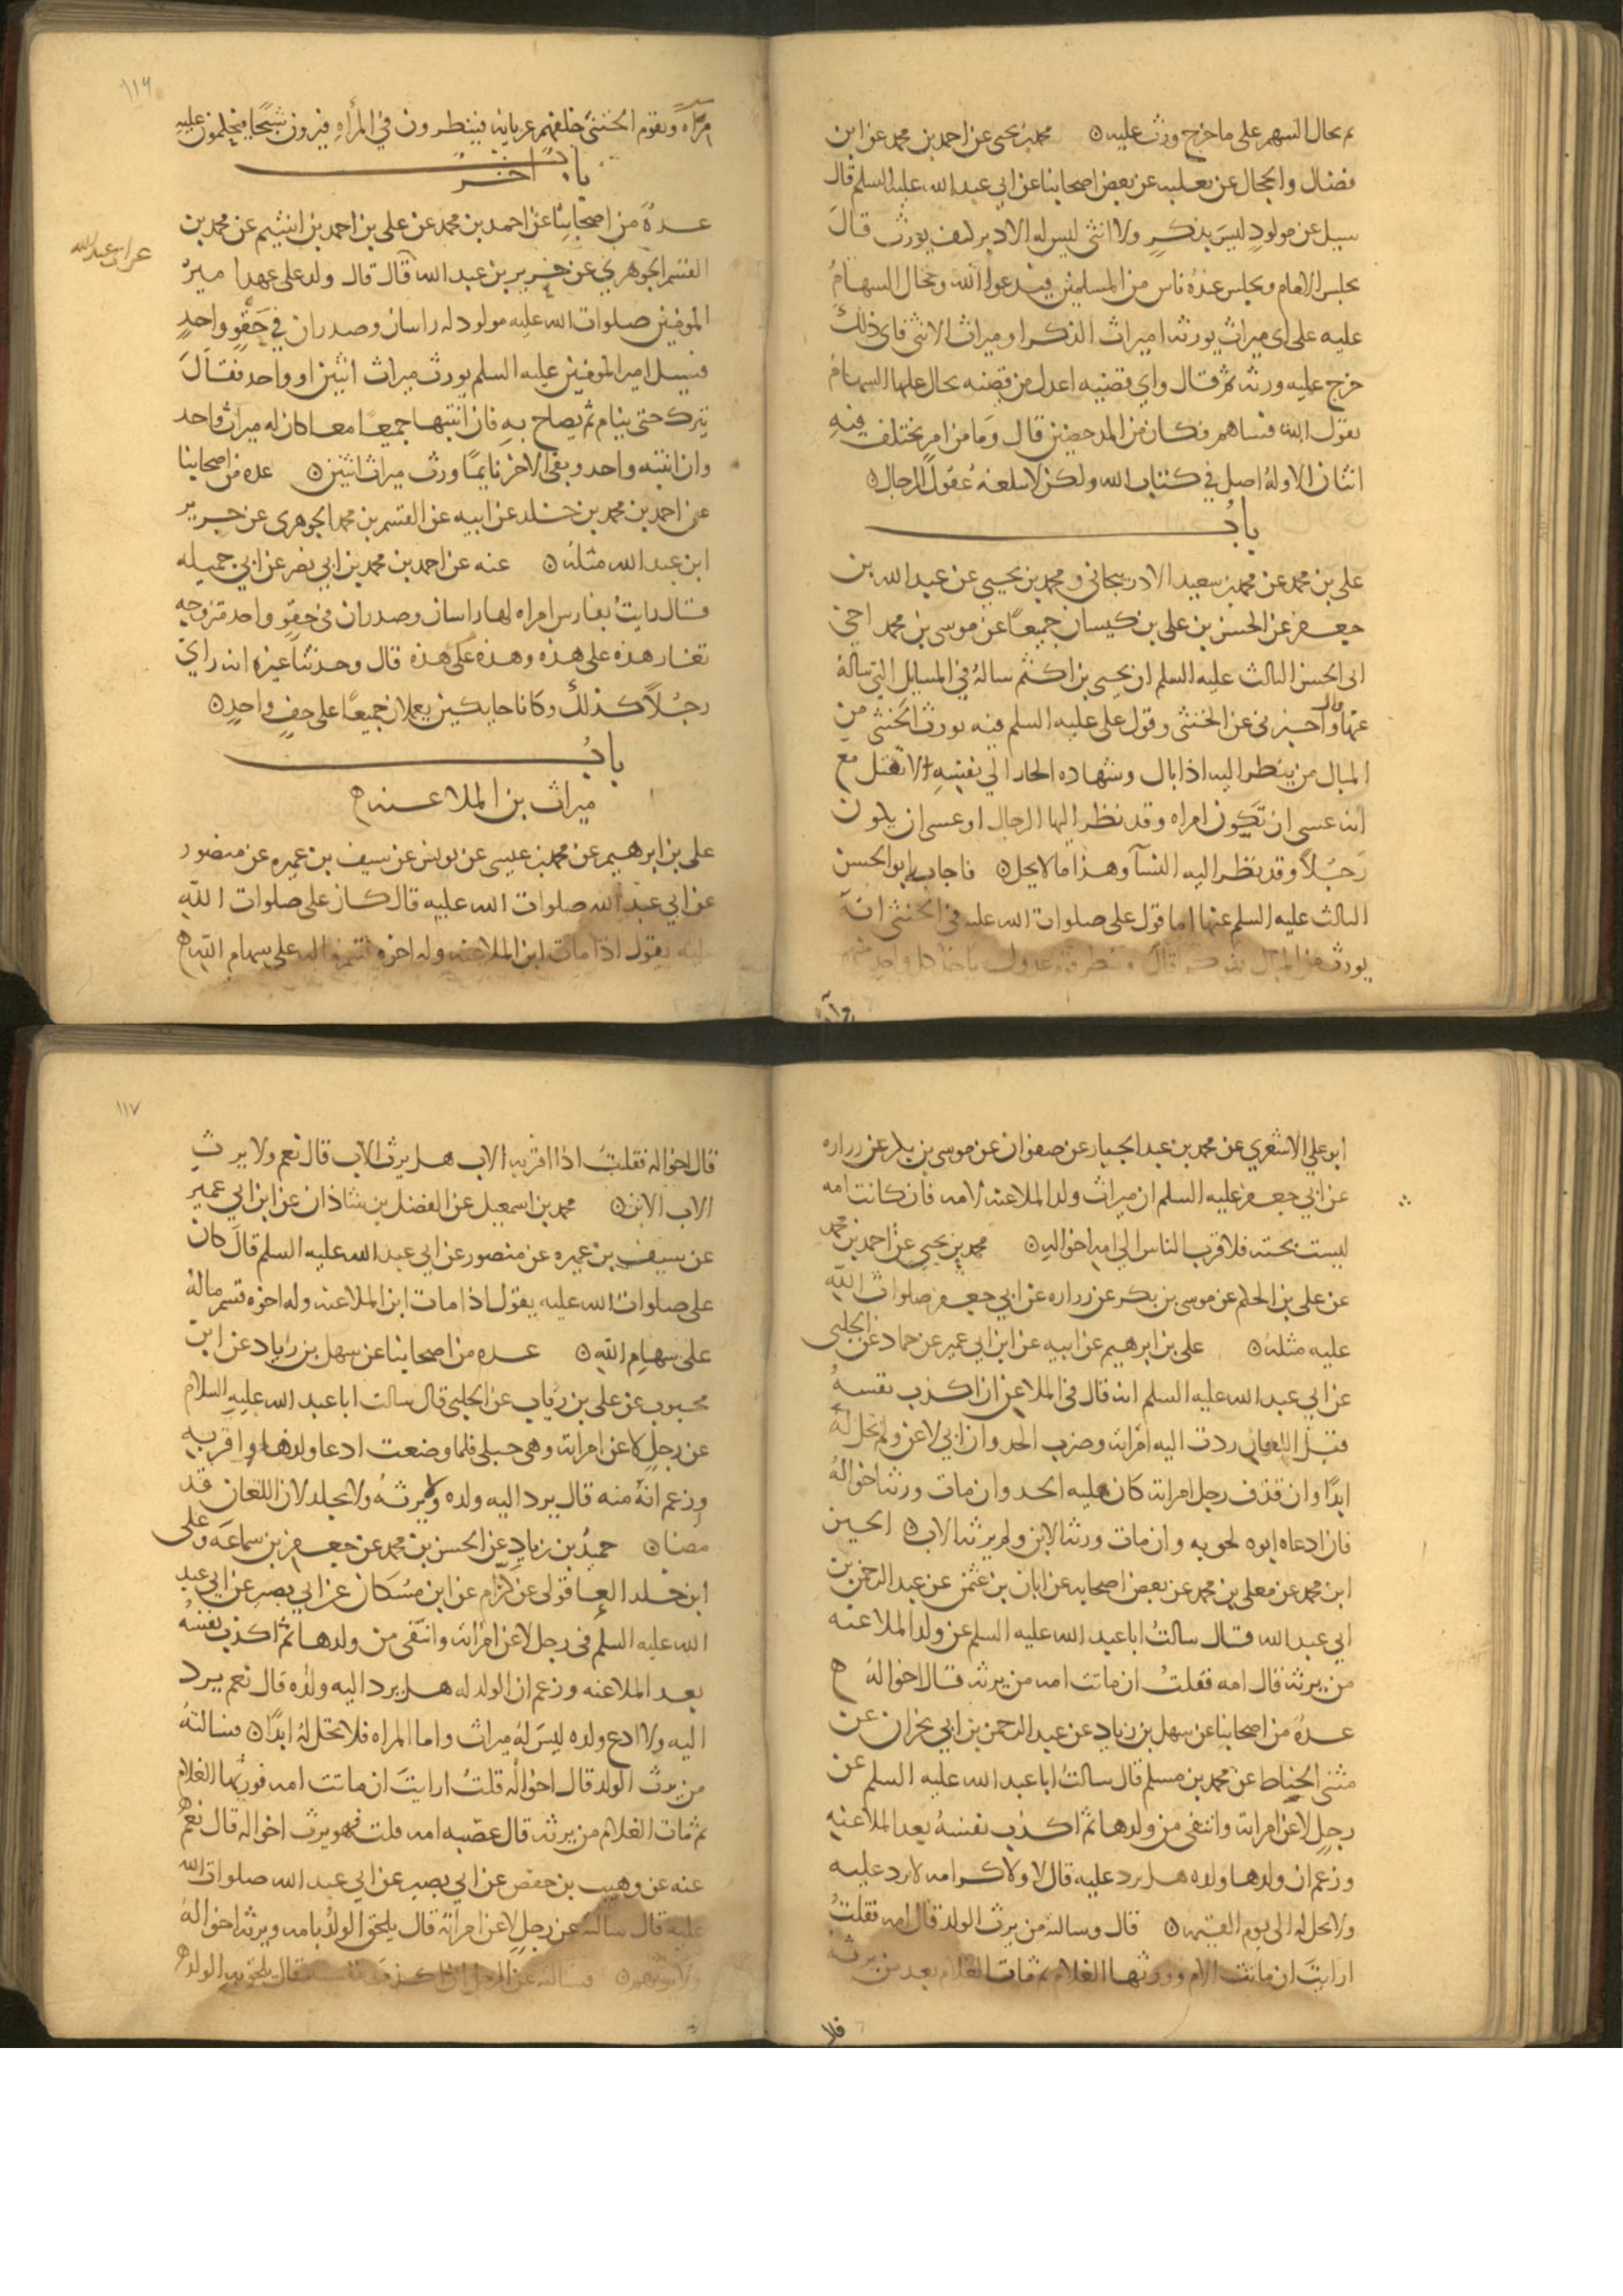 ثم يجال السهم على ما خرج ورث عليه ن محمد بن يحيى عن احمد بن محمد عن ابن
فضال والحجال عن ثعلبه عن بعض اصحابنا عن ابي عبد الله عليه السلم قال
سيل عن مولود ليس بذكر ولا انثى ليس له الا دبر كيف يورث قال
يجلس الامام ويجلس عنده ناس من المسلمين فيدعوا الله ويجال السهام
عليه على اى ميراث يورثه اميراث الذكر او ميراث الانثى فاى ذلك
خرج عليه ورثه ثم قال واي قضيه اعدل من قضيه يجال عليها السهام
يقول الله فساهم فكان من المدحضين قال وما من امر يختلف فيه
اثنان الا وله اصل في كتاب الله ولكن لا تبلغه عقول الرجال ن
باب
على بن محمد عن محمد بن سعيد الادربيجانى ومحمد بن يحيى عن عبد الله بن
جعفر عن الحسن بن على بن كيسان جميعا عن موسى بن محمد اخي
ابى الحسن الثالث عليه السلم ان يحيى بن اكثم ساله في المسايل التى ساله
عنها قال واخبرنى عن الخنثى وقول على عليه السلم فيه يورث الخنثى من
المبال من ينظر اليه اذا بال وشهاده الجار الى نفسه لا تقبل مع
انه عسى ان تكون امراه وقد نظر اليها الرجال او عسى ان يكون
رجلا وقد نظر اليه النسآ وهذا ما لا يحل ن فاجاب ابو الحسن
الثالث عليه السلم عنها اما قول على صلوات الله عليه في الخنثى انه
يورث من المبال فهو كما قال وينظر قوم عدول ياخذ كل واحد منهم
مرآه
١١٦
مرآه وتقوم الخنثى خلفهم عريانه فينظرون في المرآه فيرون شبحا فيحكمون عليه
باب اخر
عده من اصحابنا عن احمد بن محمد عن على بن احمد بن اشيم عن محمد بن
القسم الجوهري عن حريز بن عبد الله قال قال ولد على عهد امير
عن ابى عبد الله
المومنين صلوات الله عليه مولود له راسان وصدران في حقو واحد
فسيل امير المومنين عليه السلم يورث ميراث اثنين او واحد فقال
يترك حتى ينام ثم يصاح به فان انتبها جميعا معا كان له ميراث واحد
وان انتبه واحد وبقى الاخر نايما ورث ميراث اثنين ن عده من اصحابنا
عن احمد بن محمد بن خلد عن ابيه عن القسم بن محمد الجوهرى عن حريز
ابن عبد الله مثله ن عنه عن احمد بن محمد بن ابي نصر عن ابي جميله
قال رايت بفارس امراه لها راسان وصدران في حقو واحد متزوجه
تغار هذه على هذه وهذه على هذه قال وحدثنا غيره انه راي
رجلا كذلك وكانا حايكين يعملان جميعا على حف واحد ن
باب
ميراث بن الملاعنه
على بن ابرهيم عن محمد بن عيسى عن يونس عن سيف بن عميره عن منصور
عن ابي عبد الله صلوات الله عليه قال كان على صلوات الله
عليه يقول اذا مات ابن الملاعنه وله اخوه قسم ماله على سهام الله
ابو علي الاشعري عن محمد بن عبد الجبار عن صفوان عن موسى بن بكر عن زراره
عن ابي جعفر عليه السلم ان ميراث ولد الملاعنه لامه فان كانت امه
ليست بحيه فلاقرب الناس الى امه اخواله ن محمد بن يحيى عن احمد بن محمد
عن على بن الحكم عن موسى بن بكر عن زراره عن ابي جعفر صلوات الله
عليه مثله ن على بن ابرهيم عن ابيه عن ابن ابي عمير عن حماد عن الحلبى
عن ابي عبد الله عليه السلم انه قال في الملاعن ان اكذب نفسه
قبل اللعان ردت اليه امراته وضرب الحد وان ابي لاعن ولم تحل له
ابدا وان قذف رجل امراته كان عليه الحد وان مات ورثه اخواله
فان ادعاه ابوه لحق به وان مات ورثه الابن ولم يرثه الاب ن الحسين
ابن محمد عن معلى بن محمد عن بعض اصحابه عن ابان بن عثمن عن عبد الرحمن بن
ابي عبد الله قال سالت ابا عبد الله عليه السلم عن ولد الملاعنه
من يرثه قال امه فقلت ان ماتت امه من يرثه قال اخواله
عده من اصحابنا عن سهل بن زياد عن عبد الرحمن بن ابي نجران عن
مثنى الحناط عن محمد بن مسلم قال سالت ابا عبد الله عليه السلم عن
رجل لاعن امراته وانتفى من ولدها ثم اكذب نفسه بعد الملاعنه
وزعم ان ولدها ولده هل يرد عليه قال لا ولا كرامه لا يرد عليه
ولا تحل له الى يوم القيمه ن قال وسالته من يرث الولد قال امه فقلت
ارايت ان ماتت الام وورثها الغلام ثم مات الغلام بعد من يرثه
١١٧
قال اخواله فقلت اذا اقر به الاب هل يرث الاب قال نعم ولا يرث
الاب الابن ن محمد بن اسمعيل عن الفضل بن شاذان عن ابن ابي عمير
عن سيف بن عميره عن منصور عن ابي عبد الله عليه السلم قال كان
على صلوات الله عليه يقول اذا مات ابن الملاعنه وله اخوه قسم ماله
على سهام الله ن عده من اصحابنا عن سهل بن زياد عن ابن
محبوب عن على بن رياب عن الحلبى قال سالت ابا عبد الله عليه السلام
عن رجل لاعن امراته وهى حبلى فلما وضعت ادعا ولدها واقر به
وزعم انه منه قال يرد اليه ولده ولا يرثه ولا يجلد لان اللعان قد
مضا ن حميد بن زياد عن الحسن بن محمد عن جعفر بن سماعه وعلى
ابن خلد العاقولى عن كرام عن ابن مسكان عن ابي بصير عن ابي عبد
الله عليه السلم في رجل لاعن امراته وانتفى من ولدها ثم اكذب نفسه
بعد الملاعنه وزعم ان الولد له هل يرد اليه ولده قال نعم يرد
اليه ولا ادع ولده ليس له ميراث واما المراه فلا تحل له ابدا ن فسالته
من يرث الولد قال اخواله قلت ارايت ان ماتت امه فورثها الغلام
ثم مات الغلام من يرثه قال عصبه امه قلت فهو يرث اخواله قال نعم
عنه عن وهيب بن حفص عن ابي بصير عن ابي عبد الله صلوات الله
عليه قال سالته عن رجل لاعن امراته قال يلحق الولد بامه ويرثه اخواله
ولا يرثهم ن فسالته عن الرجل اذا اكذب نفسه قال يلحق به الولد